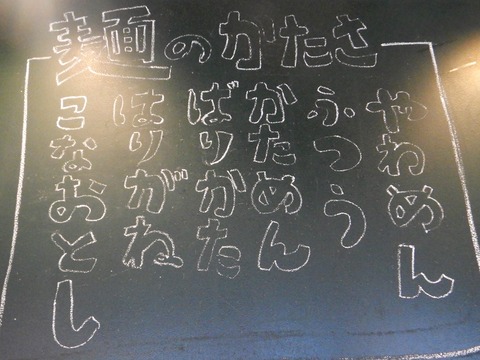 麺のかたさ
やわめん
ふつう
かためん
ばりかた
はりがね
こなおとし